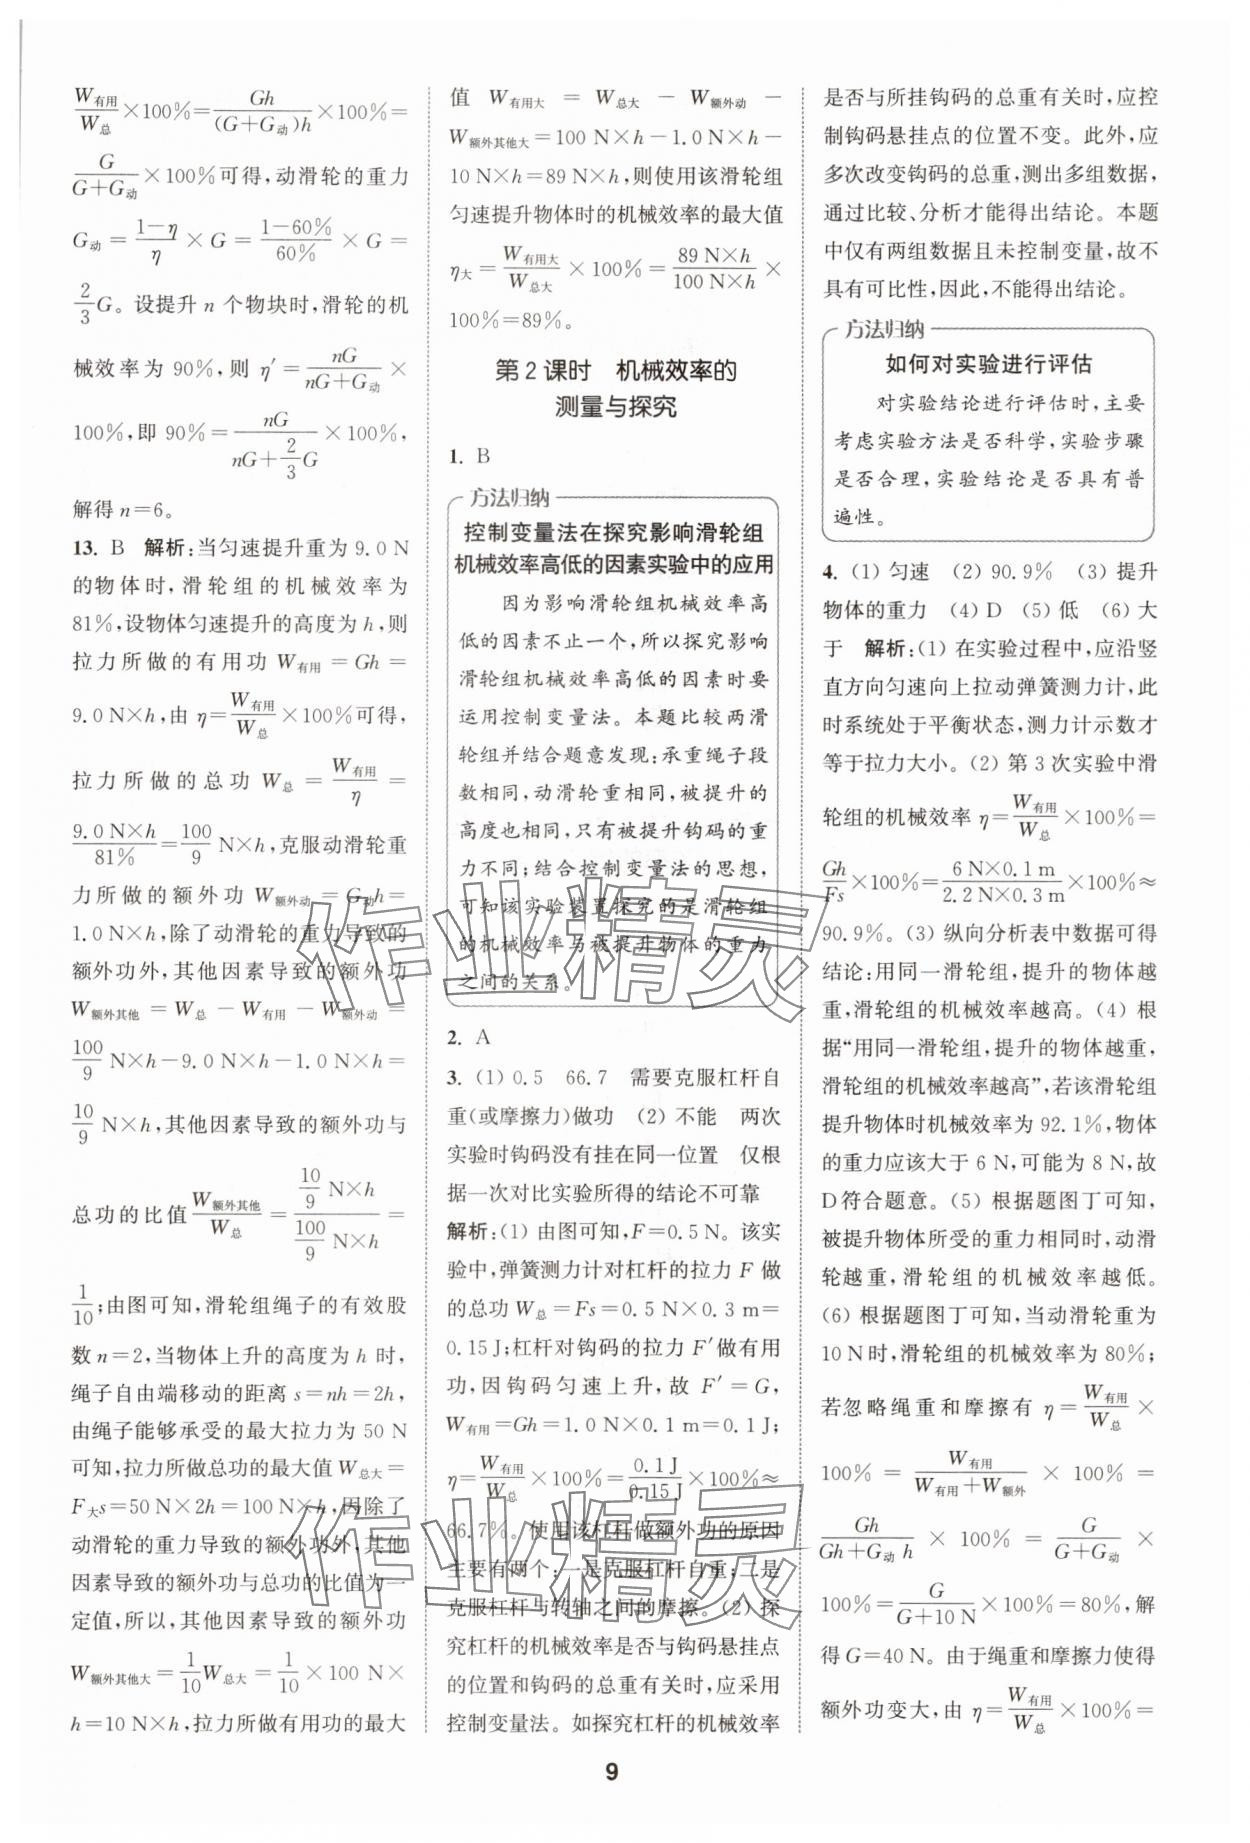 W有用/W总×100%=Gh/(G+G动)h×100%=
G/(G+G动)×100%可得,动滑轮的重力
G动=(1-η)/η×G=(1-60%)/60%×G=
2/3G。设提升 n 个物块时,滑轮的机
械效率为 90%,则 η′=nG/(nG+G动)×
100%,即 90%=nG/(nG+2/3G)×100%,
解得 n=6。
13. B 解析:当匀速提升重为 9.0 N
的物体时,滑轮组的机械效率为
81%,设物体匀速提升的高度为 h,则
拉力所做的有用功 W有用=Gh=
9.0 N×h,由 η=W有用/W总×100%可得,
拉力所做的总功 W总=W有用/η=
9.0 N×h/81%=100/9 N×h,克服动滑轮重
力所做的额外功 W额外动=G动h=
1.0 N×h,除了动滑轮的重力导致的
额外功外,其他因素导致的额外功
W额外其他=W总-W有用-W额外动=
100/9 N×h-9.0 N×h-1.0 N×h=
10/9 N×h,其他因素导致的额外功与
总功的比值W额外其他/W总=(10/9 N×h)/(100/9 N×h)=
1/10;由图可知,滑轮组绳子的有效股
数 n=2,当物体上升的高度为 h 时,
绳子自由端移动的距离 s=nh=2h,
由绳子能够承受的最大拉力为 50 N
可知,拉力所做总功的最大值 W总大=
F大s=50 N×2h=100 N×h,因除了
动滑轮的重力导致的额外功外,其他
因素导致的额外功与总功的比值为一
定值,所以,其他因素导致的额外功
W额外其他大=1/10W总大=1/10×100 N×
h=10 N×h,拉力所做有用功的最大
值 W有用大=W总大-W额外动-
W额外其他大=100 N×h-1.0 N×h-
10 N×h=89 N×h,则使用该滑轮组
匀速提升物体时的机械效率的最大值
η大=W有用大/W总大×100%=89 N×h/100 N×h×
100%=89%。
第 2 课时 机械效率的
测量与探究
1. B
方法归纳
控制变量法在探究影响滑轮组
机械效率高低的因素实验中的应用
因为影响滑轮组机械效率高
低的因素不止一个,所以探究影响
滑轮组机械效率高低的因素时要
运用控制变量法。本题比较两滑
轮组并结合题意发现:承重绳子段
数相同,动滑轮重相同,被提升的
高度也相同,只有被提升钩码的重
力不同;结合控制变量法的思想,
可知该实验装置探究的是滑轮组
的机械效率与被提升物体的重力
之间的关系。
2. A
3. (1) 0.5 66.7 需要克服杠杆自
重(或摩擦力)做功 (2) 不能 两次
实验时钩码没有挂在同一位置 仅根
据一次对比实验所得的结论不可靠
解析:(1) 由图可知,F=0.5 N。该实
验中,弹簧测力计对杠杆的拉力 F 做
的总功 W总=Fs=0.5 N×0.3 m=
0.15 J;杠杆对钩码的拉力 F′做有用
功,因钩码匀速上升,故 F′=G,
W有用=Gh=1.0 N×0.1 m=0.1 J;
η=W有用/W总×100%=0.1 J/0.15 J×100%≈
66.7%。使用该杠杆做额外功的原因
主要有两个:一是克服杠杆自重;二是
克服杠杆与转轴之间的摩擦。(2) 探
究杠杆的机械效率是否与钩码悬挂点
的位置和钩码的总重有关时,应采用
控制变量法。如探究杠杆的机械效率
是否与所挂钩码的总重有关时,应控
制钩码悬挂点的位置不变。此外,应
多次改变钩码的总重,测出多组数据,
通过比较、分析才能得出结论。本题
中仅有两组数据且未控制变量,故不
具有可比性,因此,不能得出结论。
方法归纳
如何对实验进行评估
对实验结论进行评估时,主要
考虑实验方法是否科学,实验步骤
是否合理,实验结论是否具有普
遍性。
4. (1) 匀速 (2) 90.9% (3) 提升
物体的重力 (4) D (5) 低 (6) 大
于 解析:(1) 在实验过程中,应沿竖
直方向匀速向上拉动弹簧测力计,此
时系统处于平衡状态,测力计示数才
等于拉力大小。(2) 第 3 次实验中滑
轮组的机械效率 η=W有用/W总×100%=
Gh/Fs×100%=6 N×0.1 m/2.2 N×0.3 m×100%≈
90.9%。(3) 纵向分析表中数据可得
结论:用同一滑轮组,提升的物体越
重,滑轮组的机械效率越高。(4) 根
据“用同一滑轮组,提升的物体越重,
滑轮组的机械效率越高”,若该滑轮组
提升物体时机械效率为 92.1%,物体
的重力应该大于 6 N,可能为 8 N,故
D符合题意。(5) 根据题图丁可知,
被提升物体所受的重力相同时,动滑
轮越重,滑轮组的机械效率越低。
(6) 根据题图丁可知,当动滑轮重为
10 N时,滑轮组的机械效率为 80%;
若忽略绳重和摩擦有 η=W有用/W总×
100%=W有用/(W有用+W额外)×100%=
Gh/(Gh+G动 h)×100%=G/(G+G动)×
100%=G/(G+10 N)×100%=80%,解
得 G=40 N。由于绳重和摩擦力使得
额外功变大,由 η=W有用/W总×100%=
作业精灵
作业精灵
9